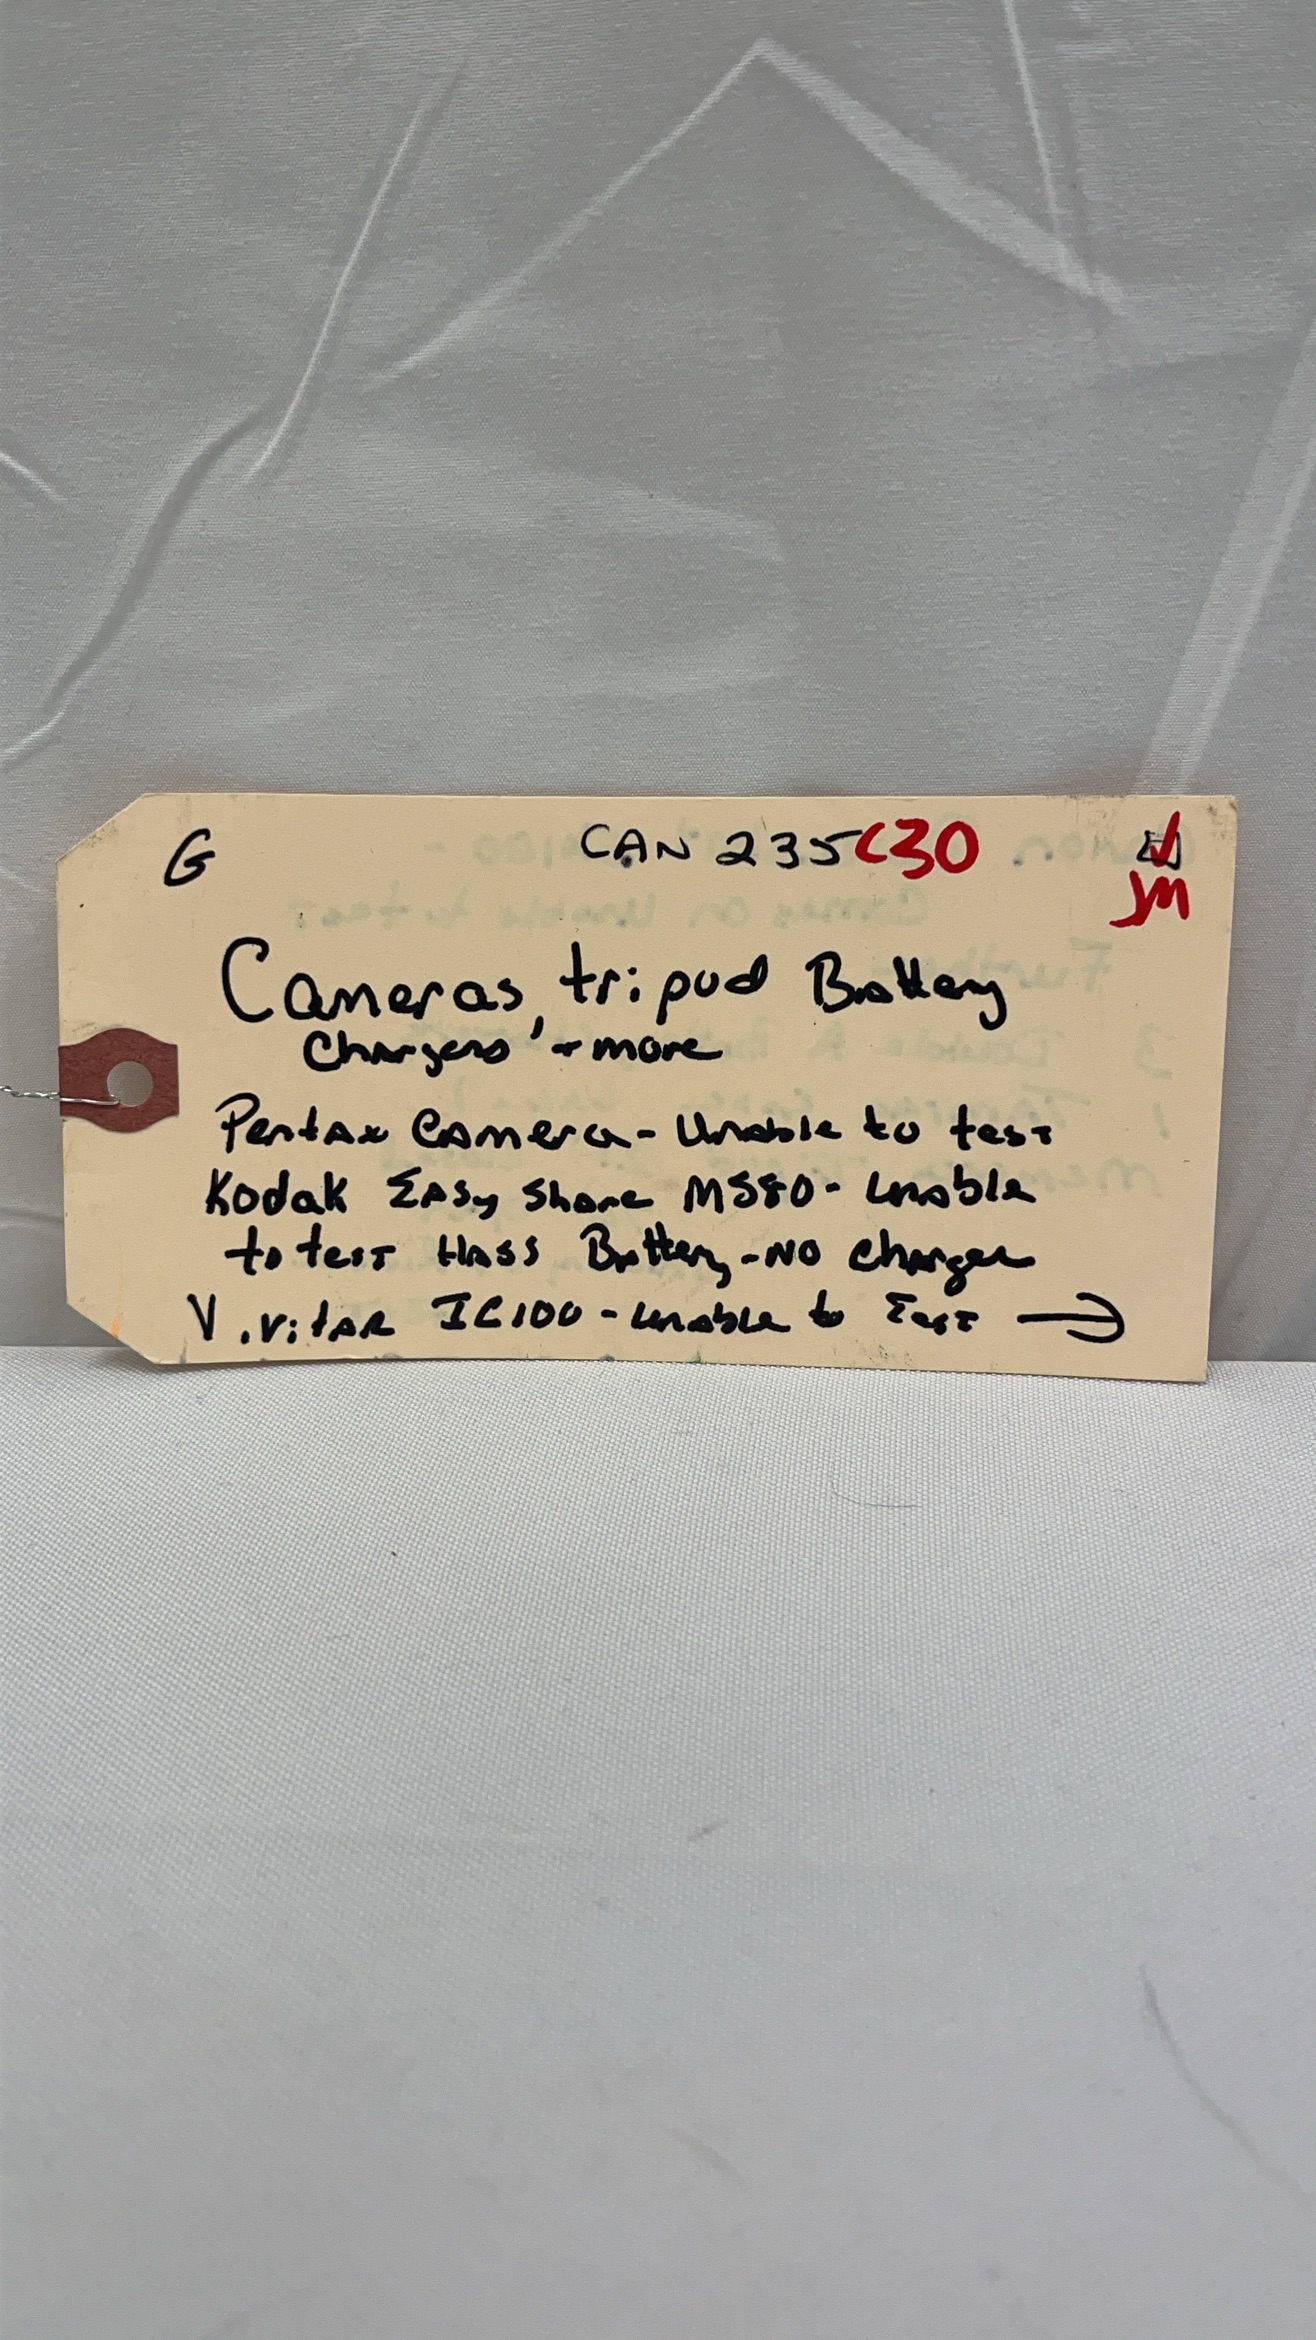 G CAN 235C30
JM
Cameras, tripod Battery
Chargers + more
Pentax Camera - Unable to test
Kodak EASy Share M580 - Unable
to test HASS Battery - NO charger
Vivitar IC100 - unable to Test →